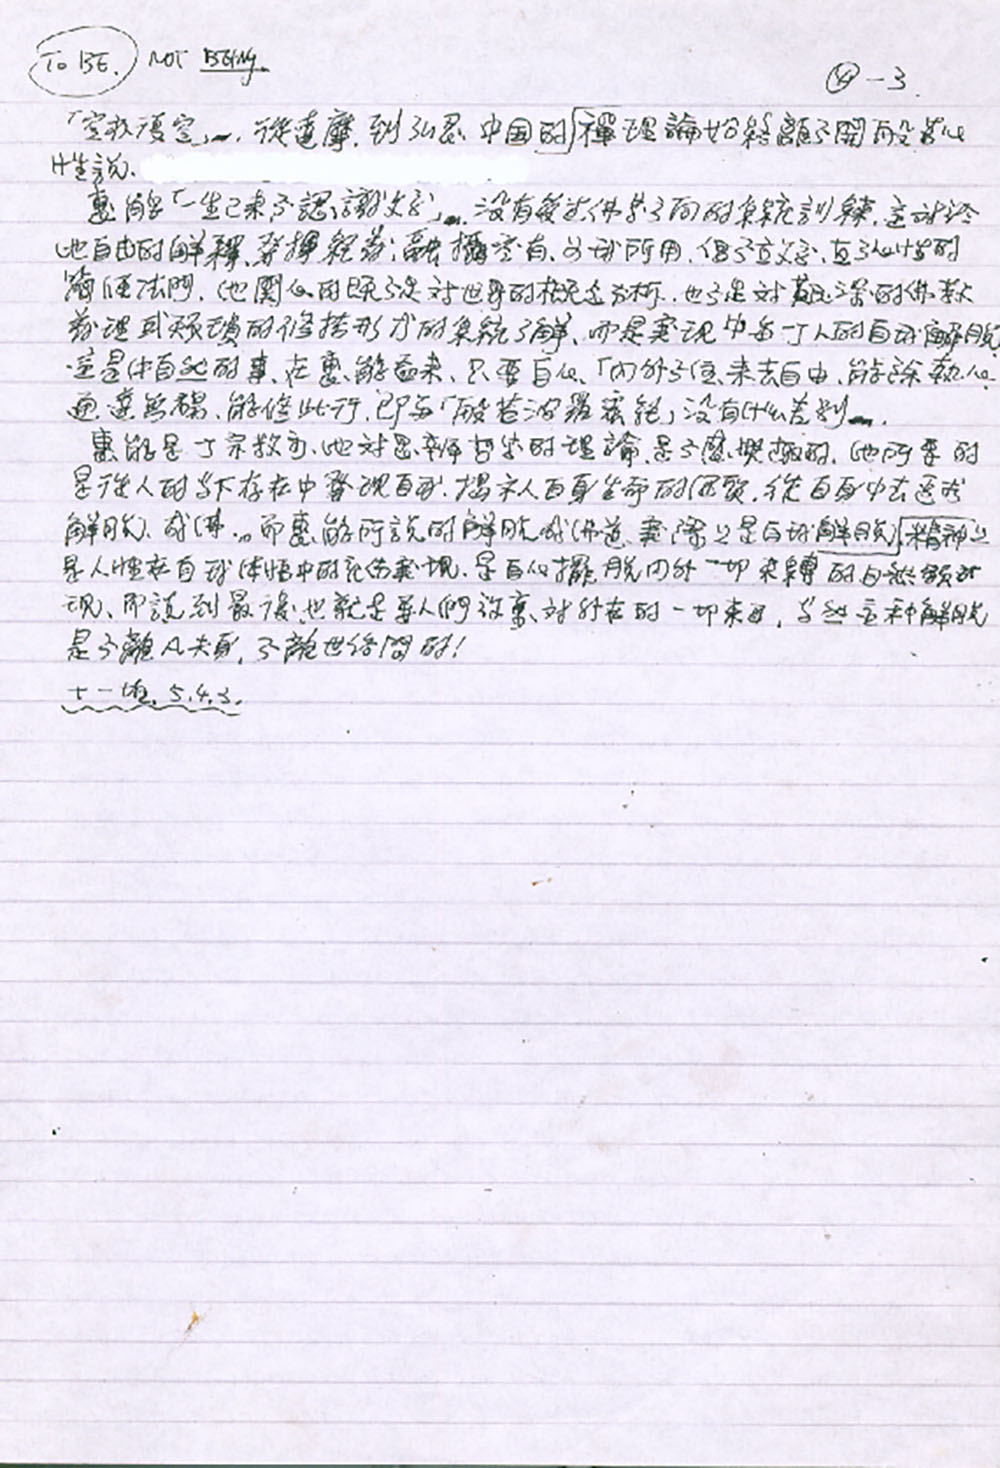 TO BE. NOT BEING.
④-3
「空我復空」…從達摩、到弘忍、中国的禪理論始終離不開般若心
性說、
惠能「一生已來不認識文字」…没有受过佛学方面的系統訓練、這对於
他自由的解釋、發揮經義、融攝空有、为我所用、倡不立文字、直了心性的
簡便法門、他関心的既不是对世界的概念分析、也不是对艱深的佛教
義理或煩瑣的修持形式的系統了解、而是实现中每一个人的自我解脫
這是件自然的事、在惠能看来、只要自心、「內外不住、来去自由、能除執心、
通達無礙、能修此行、即与「般若波羅蜜経」没有什么差别…
惠能是个宗教家、他对思辨哲学的理論是不感興趣的、他所要的
是從人的当下存在中發现自我、揭示人自身生命的  從自身中去尋求
解脫、成佛…而惠能所說的解脫成佛道、实際上是自我解脫精神上
是人性在自我体悟中的  实现、是自心擺脫內外一切束縛的自然顯
现、即說到最後、也就是要人們  对外在的一切  当然这种解脫
是不離凡夫身、不離世俗間的！
十一  5.4.3.